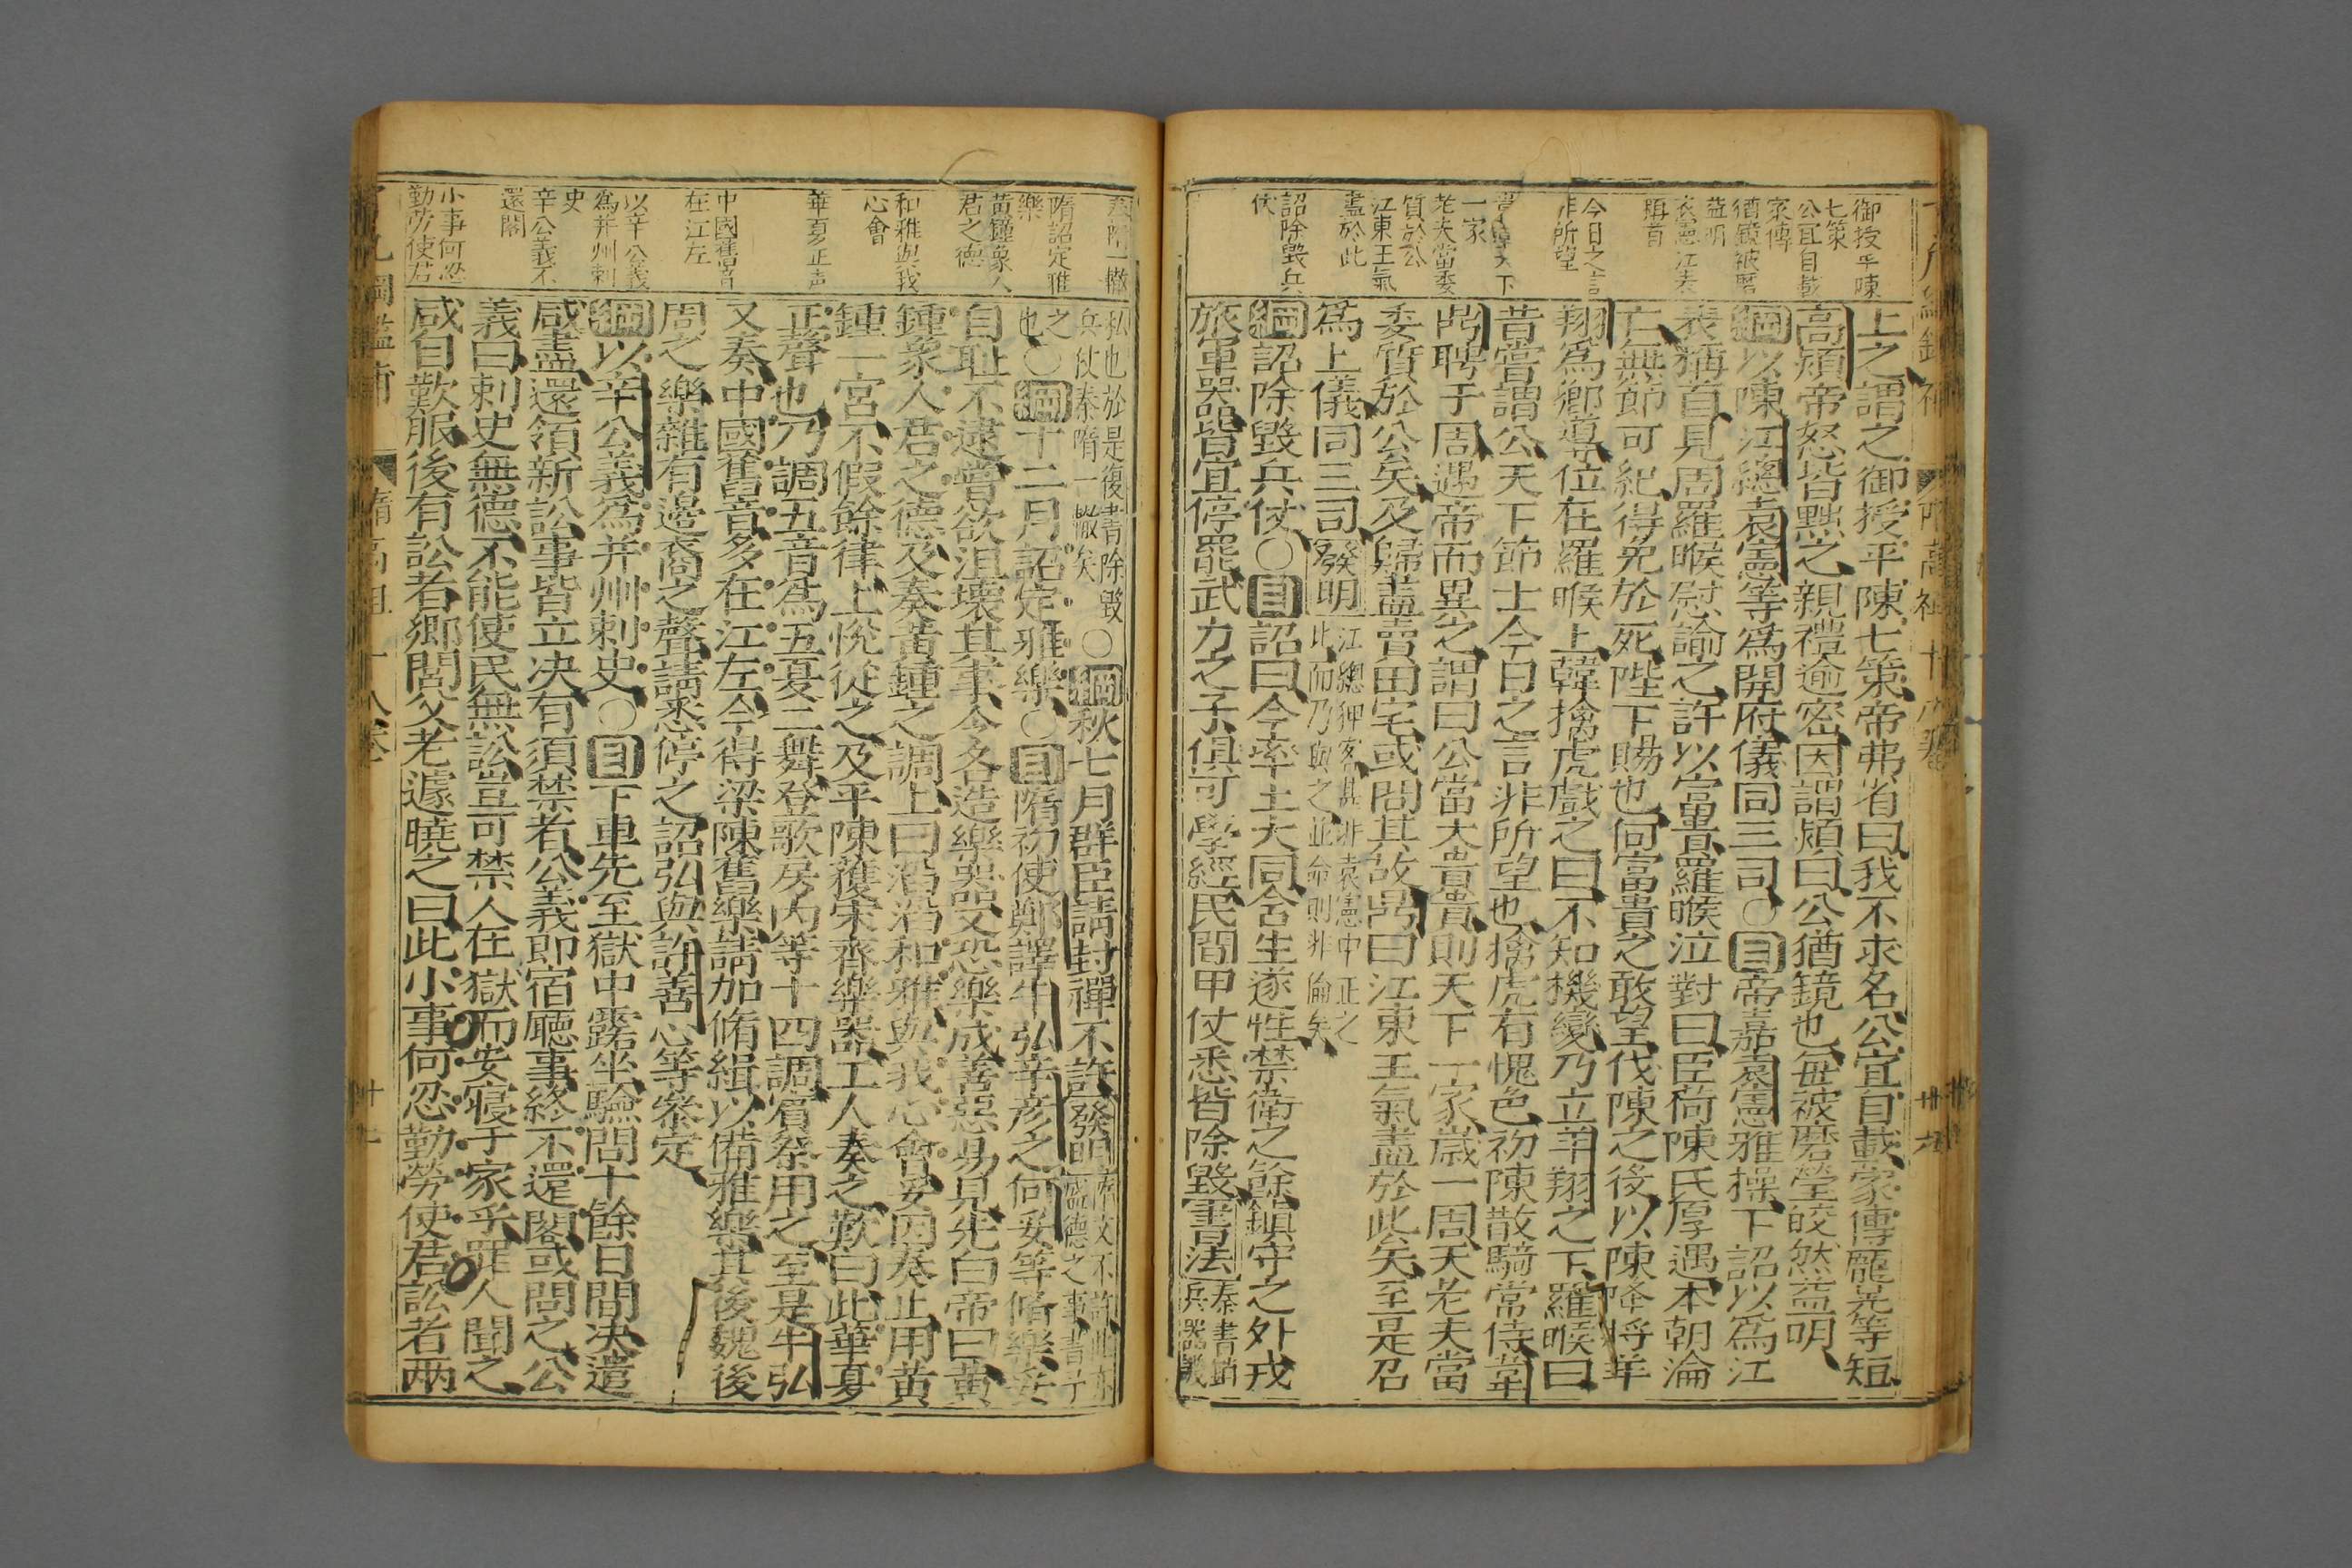 御授平陳
七策
公宜自載
家傳
猶鏡被磨
益明
袁憲江表
稱首
今日之言
非所望
天下
一家
老夫當委
質於公
江東王氣
盡於此
詔除毀兵
仗
上之謂之御授平陳七策帝弗省曰我不求名公宜自載家傳龐晃等短
高熲帝怒皆黜之親禮逾密因謂熲曰公猶鏡也每被磨瑩皎然益明
綱以陳江總袁憲等爲開府儀同三司○目帝嘉袁憲雅操下詔以爲江
表稱首見周羅睺慰諭之許以富貴羅睺泣對曰臣荷陳氏厚遇本朝淪
亡無節可紀得免於死陛下賜也何富貴之敢望伐陳之後以陳降將羊
翔爲鄉導位在羅睺上韓擒虎戲之曰不知機變乃立羊翔之下羅睺曰
昔嘗謂公天下節士今日之言非所望也擒虎有愧色初陳散騎常侍韋
鼎聘于周遇帝而異之謂曰公當大貴貴則天下一家歲一周天老夫當
委質於公矣及歸盡賣田宅或問其故鼎曰江東王氣盡於此矣至是召
爲上儀同三司發明江總狎客其非袁憲中正之
此而乃與之並命則非倫矣
綱詔除毀兵仗○目詔曰今率土大同含生遂性禁衛之餘鎮守之外戎
旅軍器皆宜停罷武力之子俱可學經民間甲仗悉皆除毀書法秦書銷
兵器譏
隋詔定雅
樂
黃鐘象人
君之德
和雅與我
心會
華夏正声
中國舊音
在江左
以辛公義
爲并州刺
史
辛公義不
還閣
小事何忍
勤勞使君
私也於是復書除毀
兵仗秦隋一轍矣○綱秋七月群臣請封禪不許發明
之
也○綱十二月詔定雅樂○目隋初使鄭譯牛弘辛彥之何妥等脩樂妥
自耻不逮嘗欲沮壞其事令各造樂器又恐樂成善惡易見先白帝曰黃
鍾象人君之德及奏黃鍾之調上曰滔滔和雅與我心會妥因奏止用黃
鍾一宮不假餘律上悅從之及平陳獲宋齊樂器工人奏之歎曰此華夏
正聲也乃調五音爲五夏二舞登歌房內等十四調賓祭用之至是牛弘
又奏中國舊音多在江左今得梁陳舊樂請加脩緝以備雅樂其後魏後
周之樂雜有邊裔之聲請悉停之詔弘與許善心等參定
綱以辛公義爲并州刺史○目下車先至獄中露坐驗問十餘日間决遣
咸盡還領新訟事皆立决有須禁者公義即宿廳事終不還閣或問之公
義曰刺史無德不能使民無訟豈可禁人在獄而安寢于家乎罪人聞之
咸自歎服後有訟者鄉閭父老遽曉之曰此小事何忍勤勞使君訟者兩